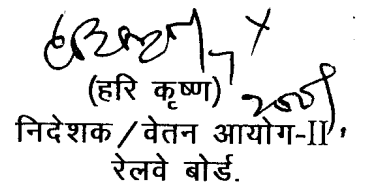 (हरि कृष्ण)
निदेशक/वेतन आयोग-II,
रेलवे बोर्ड.